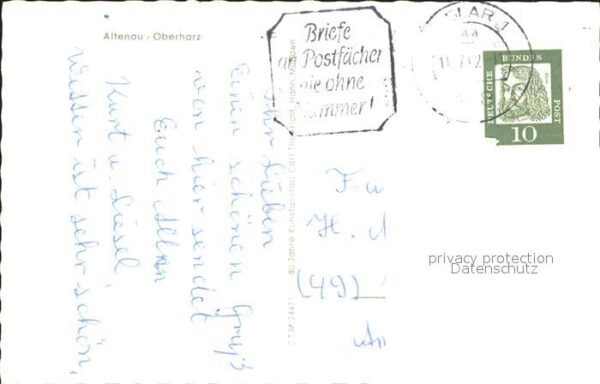 Altenau / Oberharz
Briefe
an Postfächer
nie ohne
Nummer!
DEUTSCHE BUNDESPOST
10
Ihr Lieben
Einen schönen Gruß
von hier sendet
Euch Allen
Kurt u. Liesel,
Wetter ist sehr schön,
80 Jahre Kunstanstalt Carl
Hann. Münden
Fa
H.
(49)
privacy protection
Datenschutz